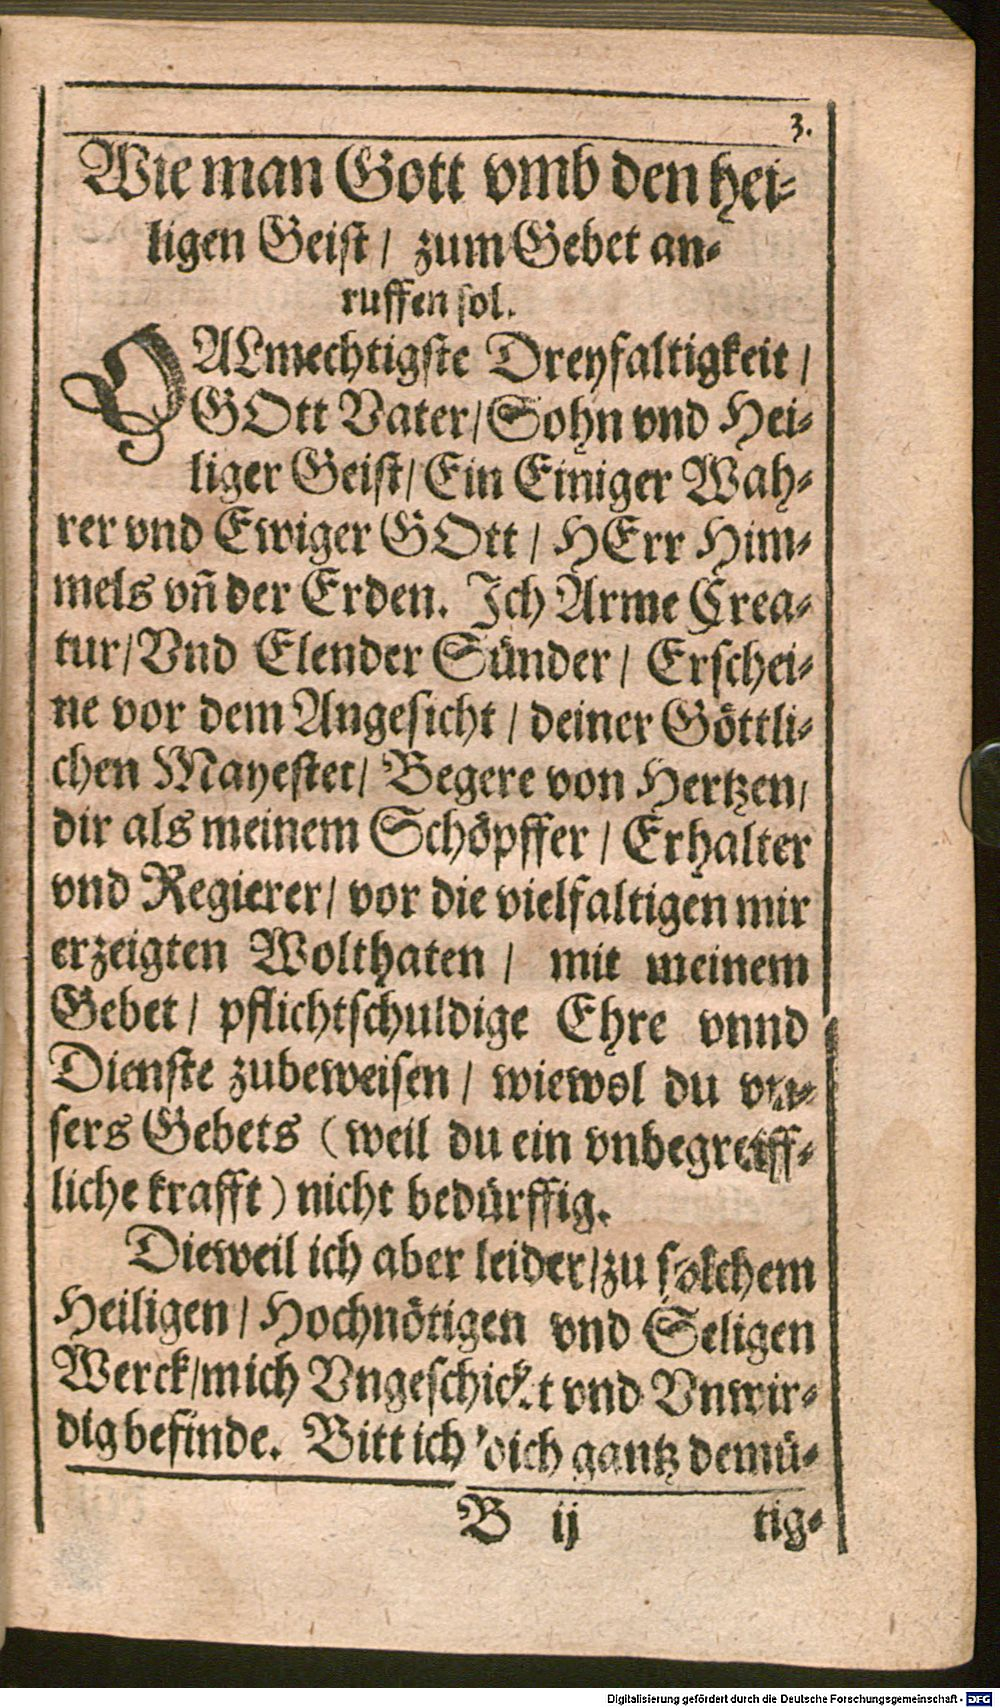 3.
Wie man Gott vmb den hei-
ligen Geist / zum Gebet an-
ruffen sol.
O ALmechtigste Dreyfaltigkeit /
GOtt Vater / Sohn vnd Hei-
liger Geist / Ein Einiger Wah-
rer vnd Ewiger GOtt / HErr Him-
mels vñ der Erden. Ich Arme Crea-
tur / Vnd Elender Sünder / Erschei-
ne vor dem Angesicht / deiner Göttli-
chen Mayestet / Begere von Hertzen /
dir als meinem Schöpffer / Erhalter
vnd Regierer / vor die vielfaltigen mir
erzeigten Wolthaten / mit meinem
Gebet / pflichtschuldige Ehre vnnd
Dienste zubeweisen / wiewol du vn-
sers Gebets (weil du ein vnbegreiff-
liche krafft) nicht bedürffig.
Dieweil ich aber leider / zu solchem
Heiligen / Hochnötigen vnd Seligen
Werck / mich Vngeschickt vnd Vnwir-
dig befinde. Bitt ich dich gantz demü-
B ij tig-
Digitalisierung gefördert durch die Deutsche Forschungsgemeinschaft - DFG